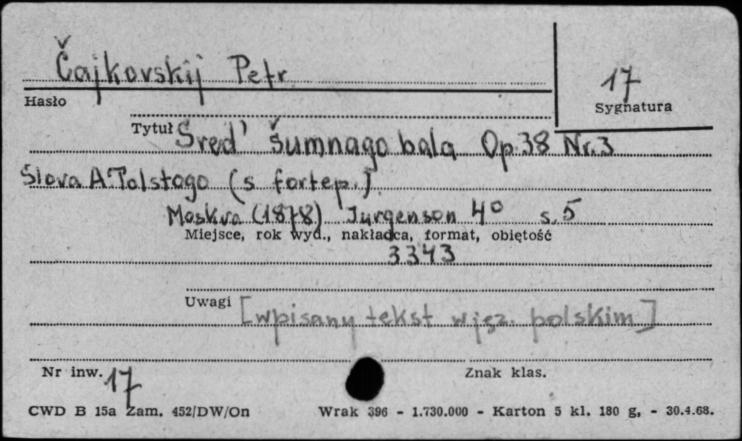 Čajkovskij Petr
Hasło
17
Sygnatura
Tytuł Sred' šumnago bala Op. 38 Nr. 3
Slova A Tolstogo (s fortep.)
Moskva (1878) Jurgenson 4° s. 5
Miejsce, rok wyd., nakładca, format, objętość
3343
Uwagi [wpisany tekst w jęz. polskim]
Nr inw. 17
Znak klas.
CWD B 15a Zam. 452/DW/On Wrak 396 - 1.730.000 - Karton 5 kl. 180 g, - 30.4.68.